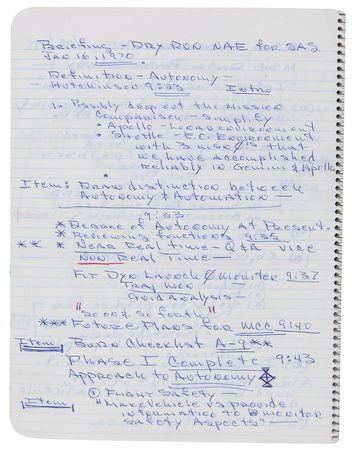 Briefing - DRY RUN NAE for SAS
JAN 16, 1970
Definition - Autonomy -
Hutchinson 9:23 Intro
1. Possibly drop out the mission
Comparison - Simplify
• Apollo - Lunar environment
• Shuttle - E.O. Environment
with 3 men that
we have accomplished
Reliably in Gemini & Apollo
Item: Draw distinction between
Autonomy & Automation
9:33
* Degree of Autonomy At Present.
* Reviewing functions 9:35
** * Near Real time - Q & A vice
Non Real Time -
Fit Dyn Launch Monitor 9:37
Traj Mon
Guid Analysis -
"so on & so forth"
*** Future Plans for MCC 9:40
Item Burn Checklist A-9**
Phase I Complete 9:43
Approach to Autonomy
① Flight Safety -
Item "Make Vehicle vs provide
information to monitor
Safety Aspects"